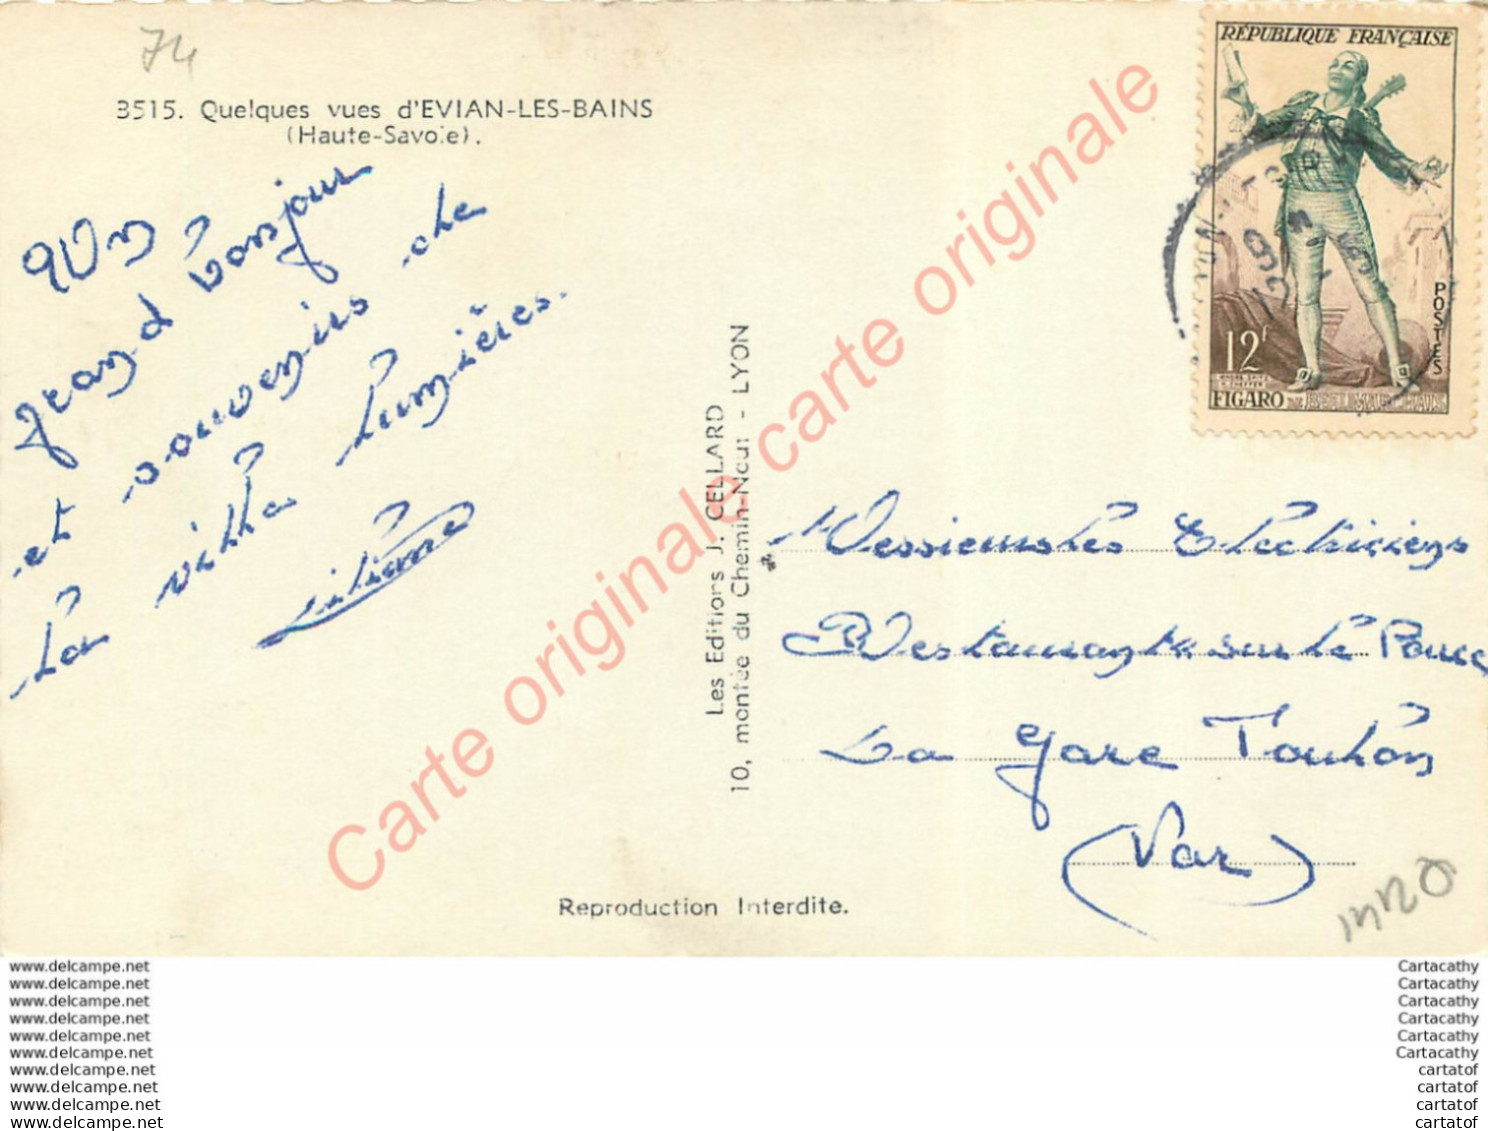 74
3515. Quelques vues d'EVIAN-LES-BAINS
(Haute-Savoie).
Un
grand bonjour
et souvenirs de
la villa Lumières.
Liliane
Les Editions J. CELLARD
10, montée du Chemin-Neuf - LYON
Reproduction Interdite.
RÉPUBLIQUE FRANÇAISE
POSTES
12F
FIGARO
Messieurs les Electriciens
Restaurant sur le Parce
La gare Toulon
(Var)
Carte originale carte originale carte originale
www.delcampe.net
www.delcampe.net
www.delcampe.net
www.delcampe.net
www.delcampe.net
www.delcampe.net
www.delcampe.net
www.delcampe.net
www.delcampe.net
www.delcampe.net
Cartacathy
Cartacathy
Cartacathy
Cartacathy
Cartacathy
Cartacathy
cartatof
cartatof
cartatof
cartatof